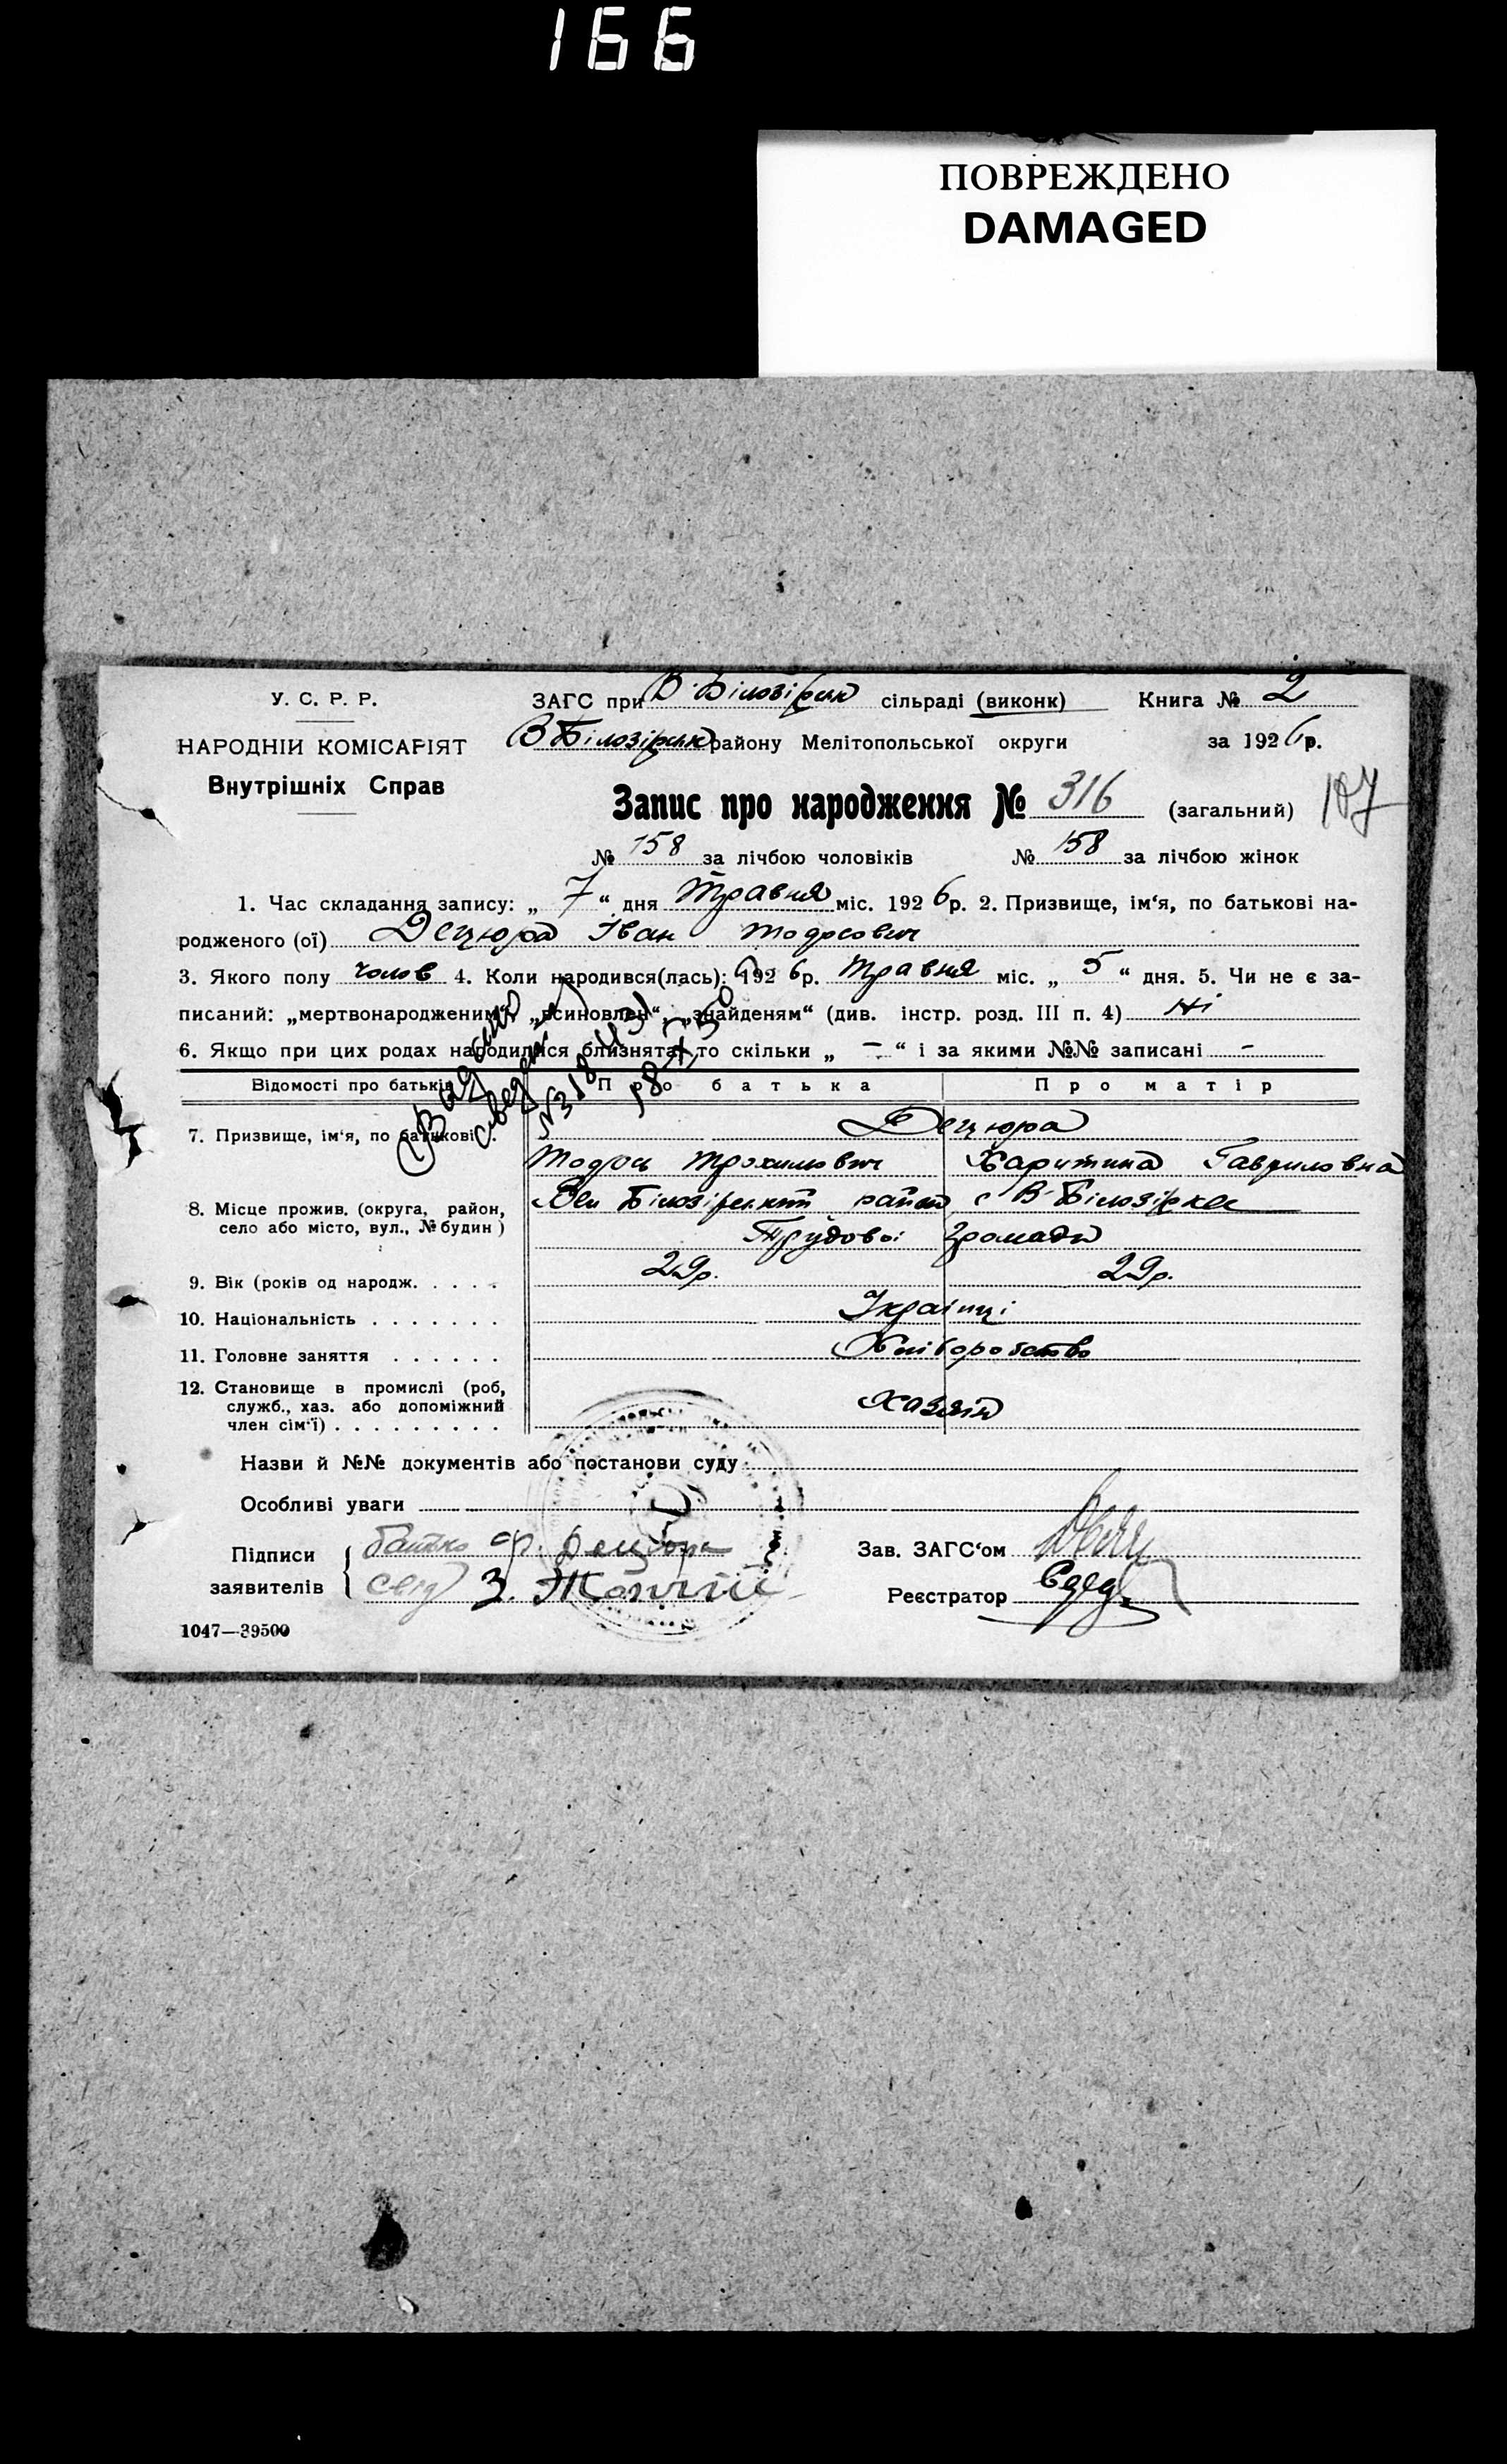 166
ПОВРЕЖДЕНО
DAMAGED
У. С. Р. Р.
НАРОДНІЙ КОМІСАРІЯТ
Внутрішніх Справ
ЗАГС при В. Білозірськ сільраді (виконк) Книга № 2
В Білозірськ району Мелітопольської округи за 1926 р.
Запис про народження № 316 (загальний) 107
№ 158 за лічбою чоловіків № 158 за лічбою жінок
1. Час складання запису: „ 7 “ дня Травня міс. 1926 р. 2. Призвище, ім‘я, по батькові на-
родженого (ої) Децюра Іван Тодосович
3. Якого полу чолов 4. Коли народився(лась): 1926 р. Травня міс. „ 5 “ дня. 5. Чи не є за-
писаний: „мертвонародженим“, „всиновлен“, „знайденям“ (див. інстр. розд. III п. 4) Ні
6. Якщо при цих родах народилися близнята, то скільки „ – “ і за якими №№ записані –
Відомості про батьків Про батька Про матір
7. Призвище, ім‘я, по батькові . Децюра
Тодось Трохимович Харитина Гавриловна
8. Місце прожив. (округа, район, Вел Білозірськ район с В-Білозірка
село або місто, вул., № будин ) Трудової Громади
9. Вік (років од народж. . . . . 29 р. 29 р.
10. Національність . . . . . . . Українці
11. Головне заняття . . . . . . Хліборобство
12. Становище в промислі (роб,
служб., хаз. або допоміжний Хазяін
член сім‘ї) . . . . . . . . .
Назви й №№ документів або постанови суду
Особливі уваги
Підписи заявителів
батько Децюра
свід З.
Зав. ЗАГС‘ом
Реєстратор
1047—39500